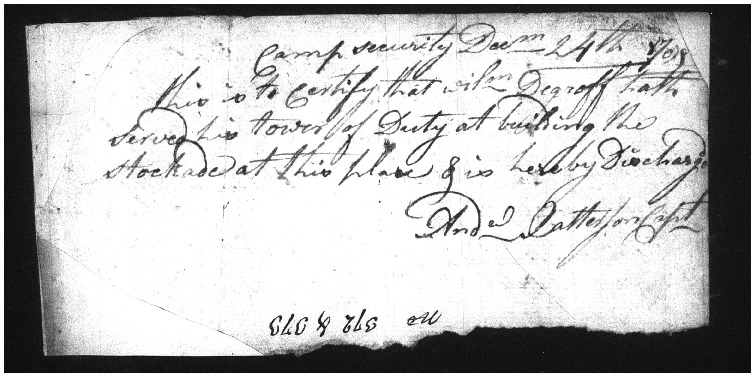 Camp security Decm 24th
this is to Certify that wilm Degroff hath
served his tower of Duty at building the
stockade at this place & is hereby Discharge
Andw Patterson Capt
372 & 373